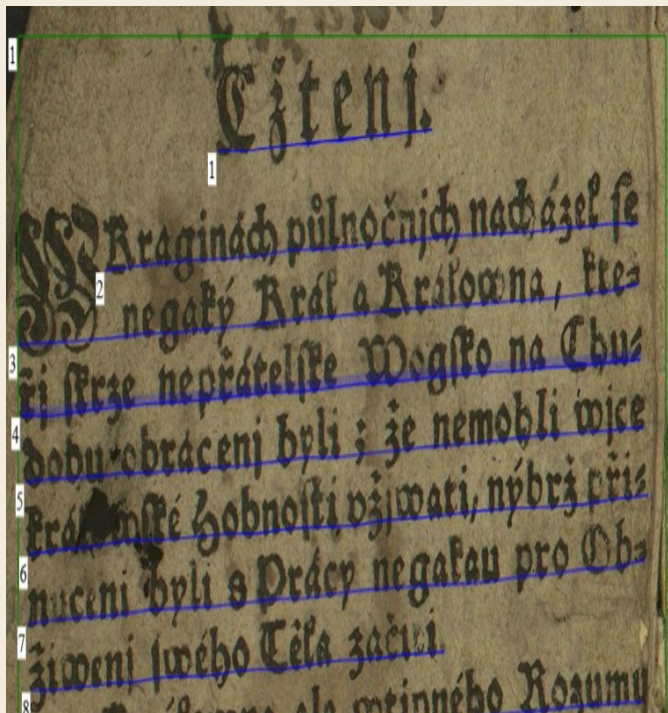 Cžtenj.
W Kraginách půlnočnjch nacházel se
negaký Král a Kralowna, kte=
ři skrze nepřátelske Wogsko na Chu=
dobu obráceni byli; že nemohli wjce
králowské Hodnosti vžjwati, nýbrž při=
nuceni byli s Prácy negakau pro Ob=
žiweni swého Těla začiti
ale wtipného Rozumu